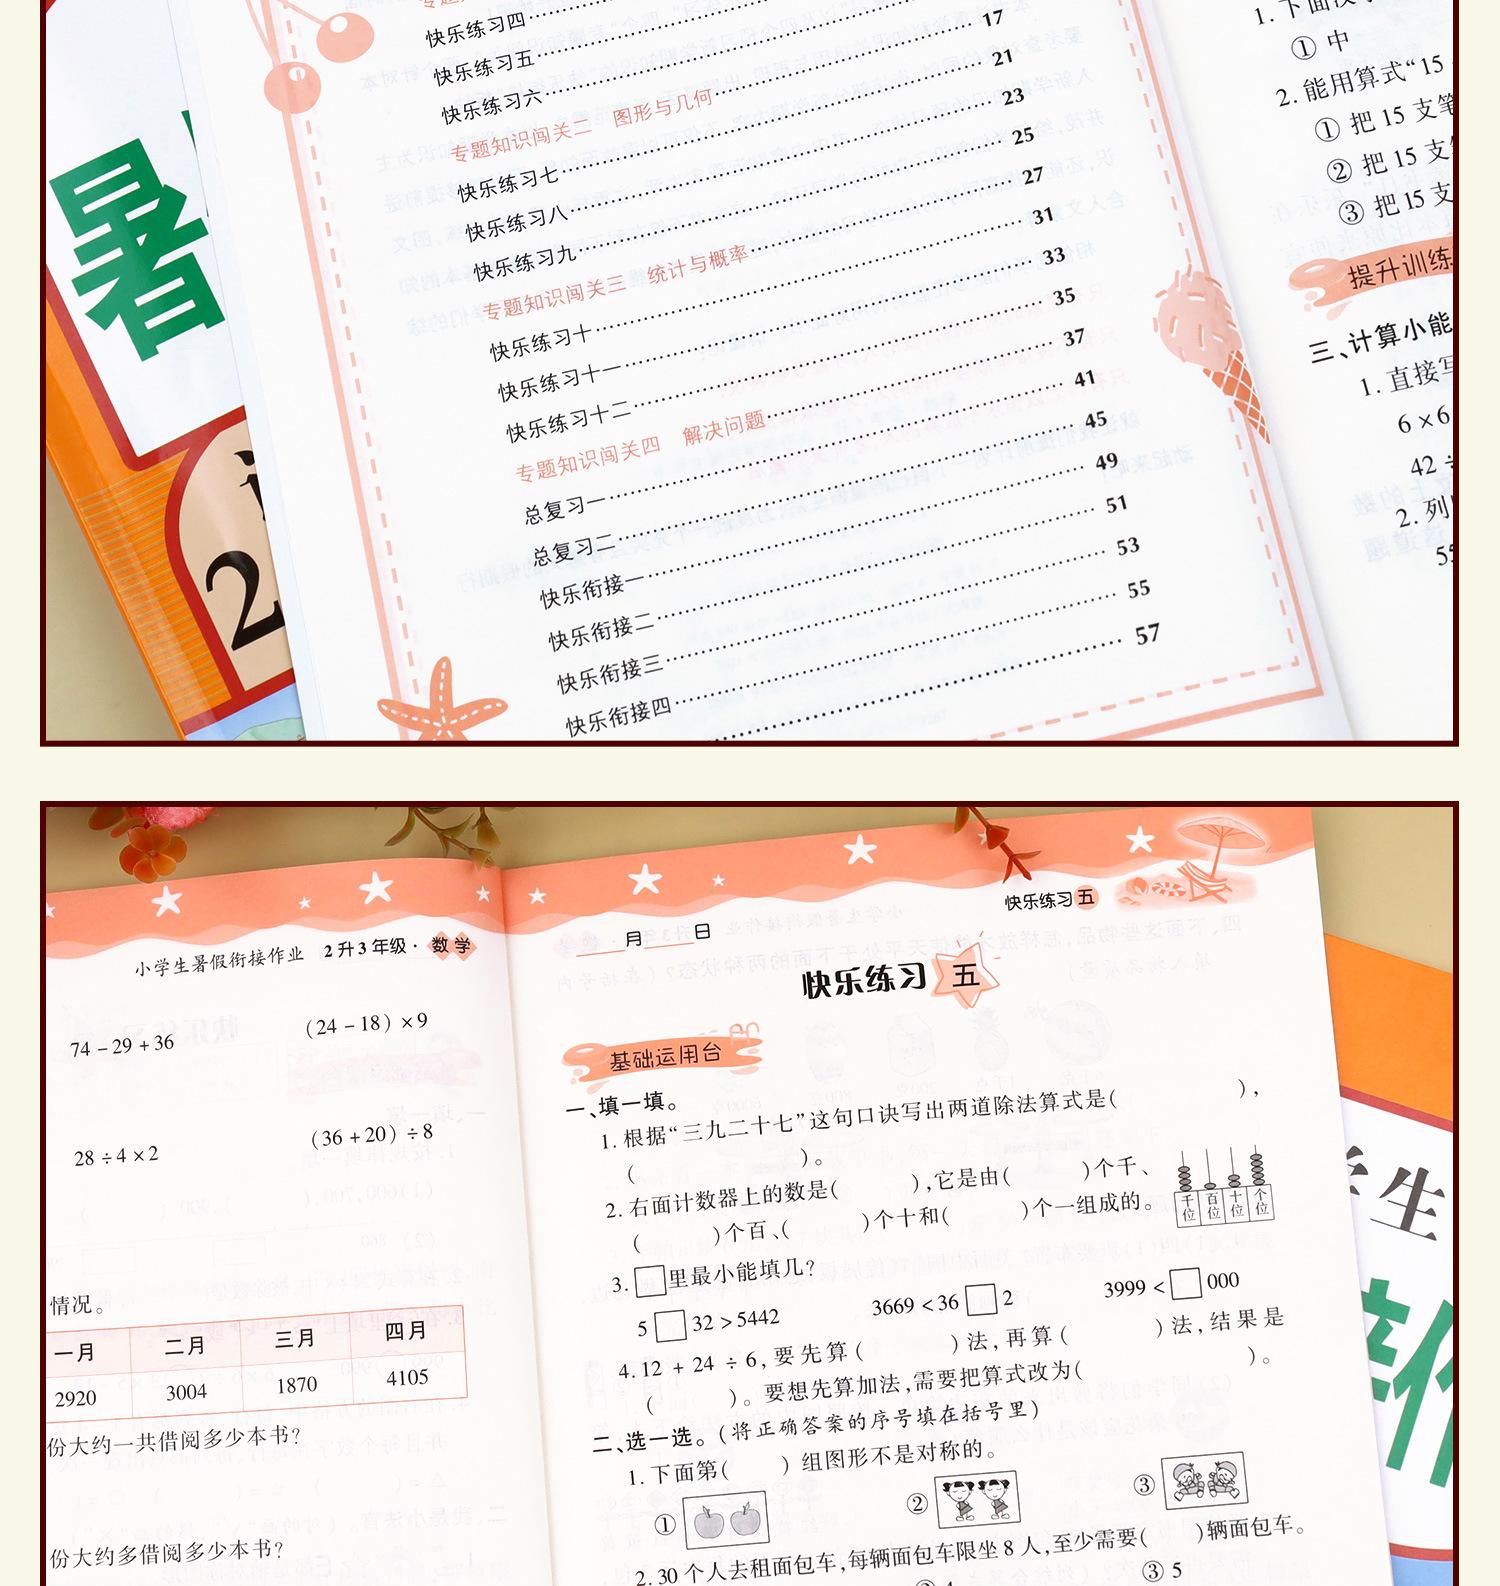 快乐练习四
快乐练习五 17
快乐练习六 21
专题知识闯关二 图形与几何 23
快乐练习七 25
快乐练习八 27
快乐练习九 31
专题知识闯关三 统计与概率 33
快乐练习十 35
快乐练习十一 37
快乐练习十二 41
专题知识闯关四 解决问题 45
总复习一 49
总复习二 51
快乐衔接一 53
快乐衔接二 55
快乐衔接三 57
快乐衔接四
暑
2
① 中
2. 能用算式“15
① 把 15 支笔
② 把 15 支
③ 把 15 支
提升训练
三、计算小能
1. 直接写
6 × 6
42 ÷
2. 列
55
小学生暑假衔接作业 2升3年级·数学
74 − 29 + 36
(24 − 18) × 9
28 ÷ 4 × 2
(36 + 20) ÷ 8
情况。
一月 二月 三月 四月
2920 3004 1870 4105
份大约一共借阅多少本书?
份大约多借阅多少本书?
快乐练习五
月 日
快乐练习 五
基础运用台
一、填一填。
1. 根据“三九二十七”这句口诀写出两道除法算式是( ),
( )。
2. 右面计数器上的数是( ),它是由( )个千、
( )个百、( )个十和( )个一组成的。
千位 百位 十位 个位
3. □里最小能填几?
5□32 > 5442 3669 < 36□2 3999 < □000
4. 12 + 24 ÷ 6,要先算( )法,再算( )法,结果是
( )。要想先算加法,需要把算式改为( )。
二、选一选。(将正确答案的序号填在括号里)
1. 下面第( )组图形不是对称的。
① ② ③
2. 30 个人去租面包车,每辆面包车限坐 8 人,至少需要( )辆面包车。
③ 5
学生